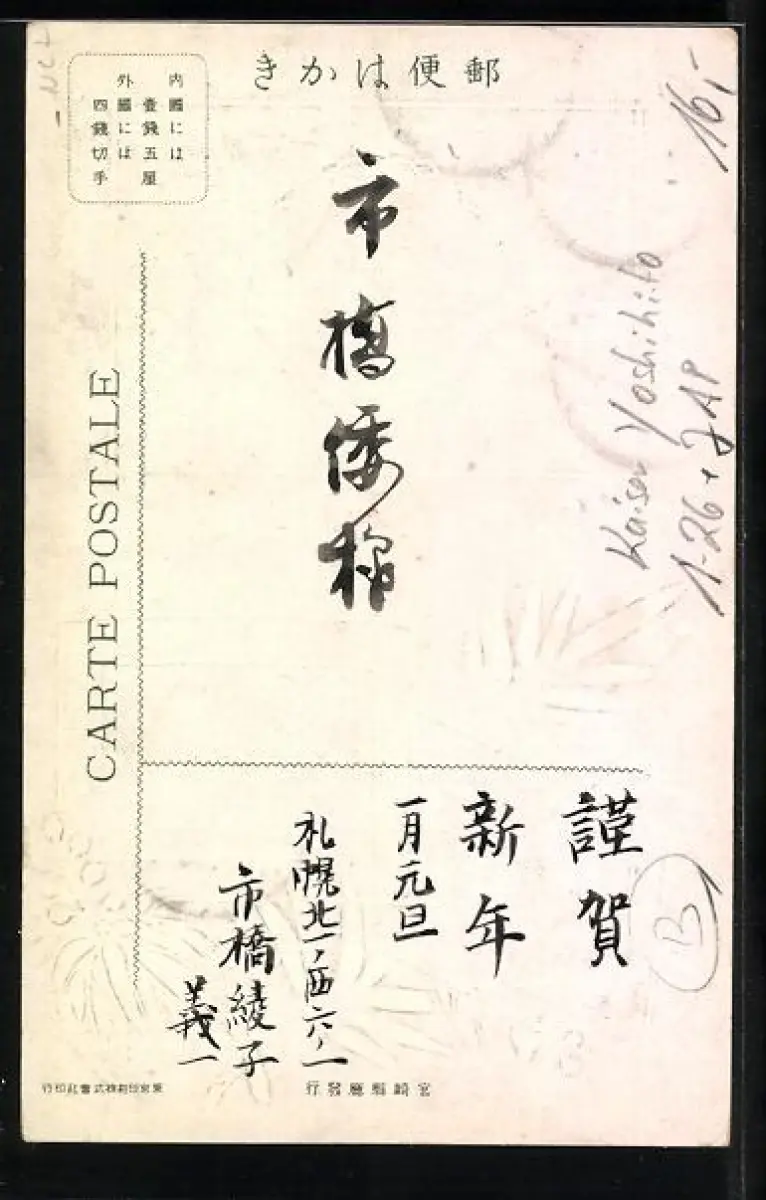 郵便はかき
内國には
壹錢五厘
外國には
四錢切手
CARTE POSTALE
市橋倭
謹賀
新年
一月元旦
札幌北一ノ西六ノ一
市橋綾子
義一
宮崎縣廳發行
16,-
Kaiser Yoshihito
1-26+JAP
B